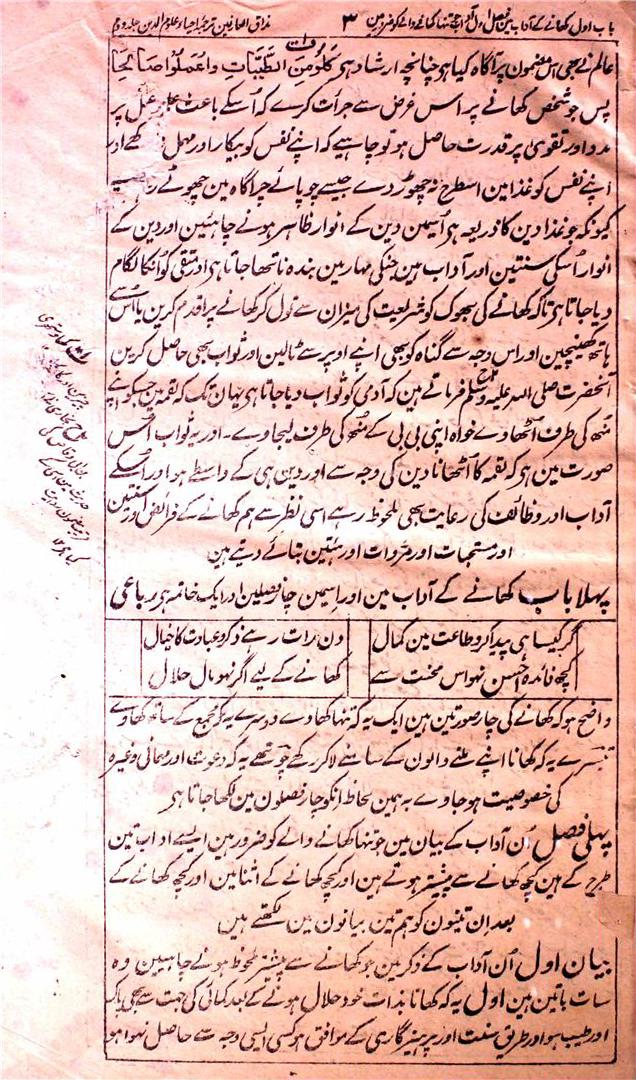 باب اول کھانے کے آداب مین فصل اول آداب جو تنہا کھانے والے کو ضرور ہین ۳ مذاق العارفین ترجمہ احیاء علوم الدین جلد دوم
عالم نے بھی اس مضمون پر آگاہ کیا ہو چنانچہ ارشاد ہی کلو من الطیبات واعملوا صالحا
پس جو شخص کھانے پر اس غرض سے جرأت کرے کہ اُسکے باعث علم و عمل پر
مدد اور تقوی پر قدرت حاصل ہو تو چاہیے کہ اپنے نفس کو بیکار اور مہمل نہ رکھے اور
اپنے نفس کو غذا مین اسطرح نہ چھوڑ دے جیسے چوپائے چراگاہ مین چھوٹے رہتے ہین
کیونکہ جو غذا دین کا ذریعہ ہی اُسمین دین کے انوار ظاہر ہونے چاہئین اور دین کے
انوار اُسکی سنتین اور آداب ہین جنکی مہار مین بندہ ناتھا جاتا ہی اور متقی کو اُنکا لگام
دیا جاتا ہی تاکہ کھانے کی بھوک کو شریعت کی میزان سے تول کر کھانے پر اقدام کرین یا اُس سے
ہاتھ کھینچین اور اس وجہ سے گناہ کو بھی اپنے اوپر سے ٹالین اور ثواب بھی حاصل کرین
آنحضرت صلی اللہ علیہ وسلم فرماتے ہین کہ آدمی کو ثواب دیا جاتا ہی یہان تک کہ لقمہ مین جسکو اپنے
منھ کی طرف اٹھا دے خواہ اپنی بی بی کے منھ کی طرف لیجاوے۔ اور یہ ثواب اُس
صورت مین ہو کہ لقمہ کا اُٹھانا دین کی وجہ سے اور دین ہی کے واسطے ہو اور اُسکے
آداب اور وظائف کی رعایت بھی ملحوظ رہے اسی نظر سے ہم کھانے کے فرائض اور سنتین
اور مستحبات اور مروات اور ہئیتین بتائے دیتے ہین
پہلا باب کھانے کے آداب مین اور اسمین چار فصلین اور ایک خاتمہ ہی رباعی
گر کیسا ہی پیدا کرو طاعت مین کمال دن رات رہے ذکر و عبادت کا خیال
کچھ فائدہ احسن نہو اس محنت سے کھانے کے لیے اگر نہو مال حلال
واضح ہو کہ کھانے کی چار صورتین ہین ایک یہ کہ تنہا کھاوے دوسرے یہ کہ مجمع کے ساتھ کھاوے
تیسرے یہ کہ کھانا اپنے ملنے والون کے سامنے لا کر رکھے چوتھے یہ کہ دعوت اور مہمانی وغیرہ
کی خصوصیت ہو جاوے بہمین لحاظ انکو چار فصلون مین لکھا جاتا ہی
پہلی فصل اُن آداب کے بیان مین جو تنہا کھانے والے کو ضرور ہین ایسے اداب تین
طرح کے ہین کچھ کھانے سے پیشتر ہوتے ہین اور کچھ کھانے کے اثنا مین اور کچھ کھانے کے
بعد ان تینون کو ہم تین بیانون مین لکھتے ہین
بیان اول اُن آداب کے ذکر مین جو کھانے سے پیشتر ملحوظ ہونے چاہیین وہ
سات باتین ہین اول یہ کہ کھانا بذات خود حلال ہونے کے بعد کمائی کی جہت سے بھی پاک
اور طیب ہو اور طریق سنت اور پرہیزگاری کے موافق ہو کسی ایسی وجہ سے حاصل نہوا ہو